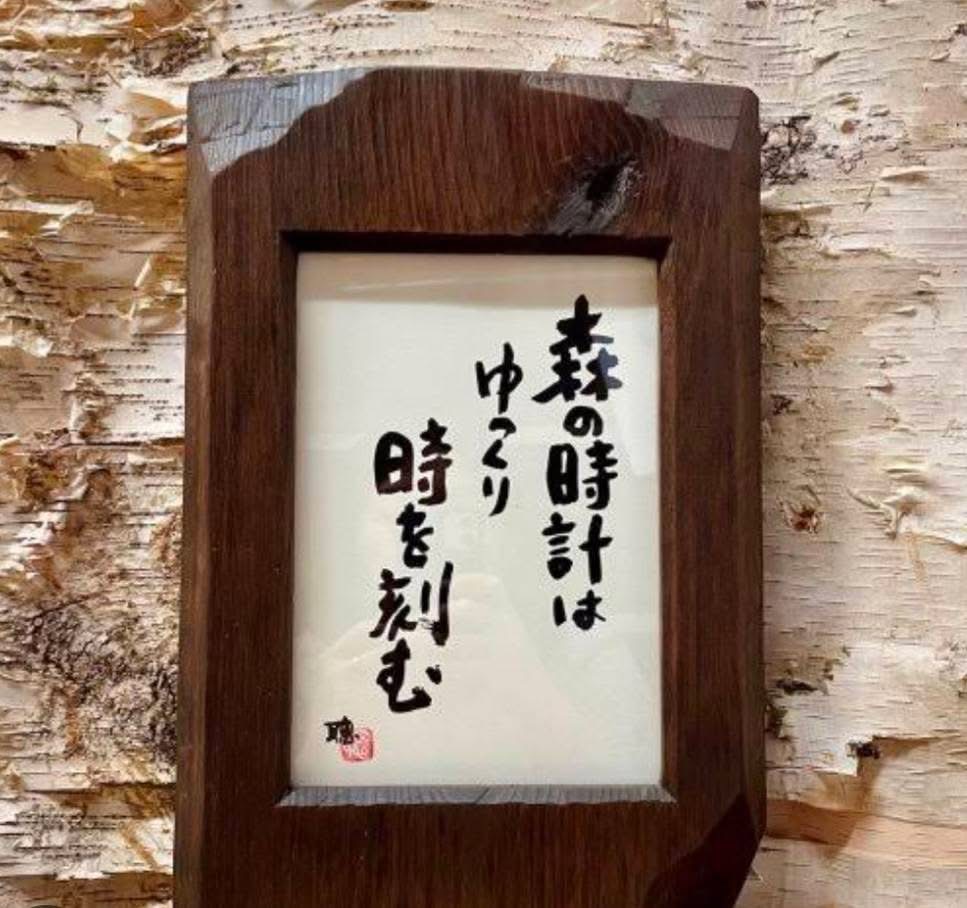 森の時計は
ゆっくり
時を刻む
聰